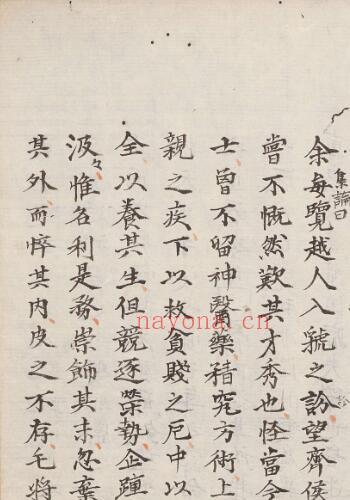 集論曰
余每覽越人入虢之訡望齊侯
嘗不慨然歎其才秀也怪當今
士曾不留神醫藥精究方術上
親之疾下以救貧賤之厄中以
全以養其生但競逐榮勢企踵
汲々惟名利是務崇飾其末忽棄
其外而悴其内皮之不存毛將
nayona.cn